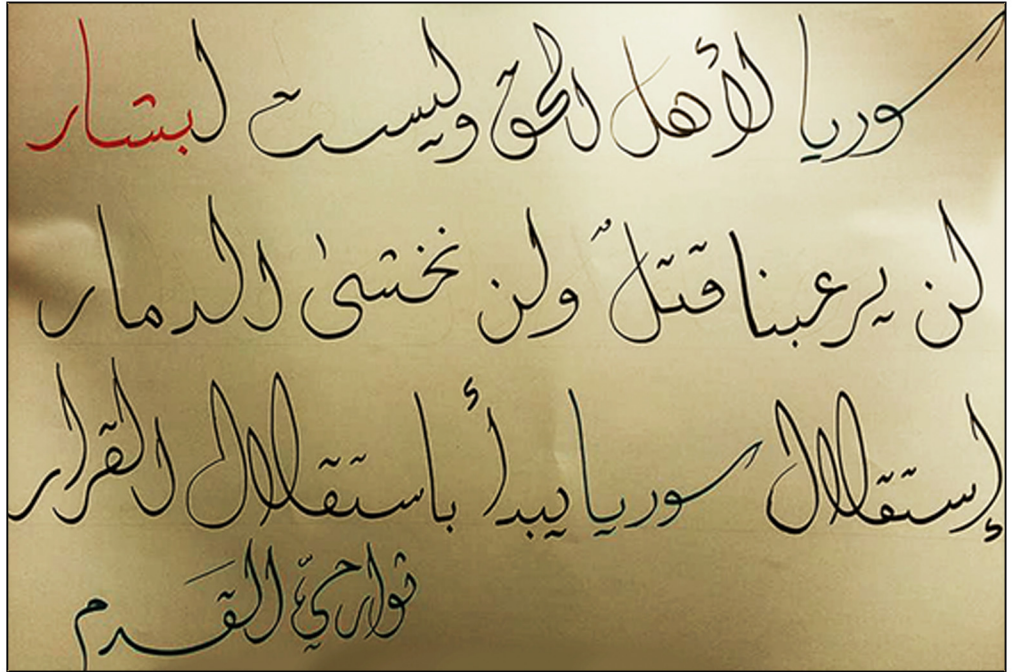 سوريا لأهل الحق وليست لبشار
لن يرعبنا قتلٌ ولن نخشىٰ الدمار
إستقلال سوريا يبدأ باستقلال القرار
ثوار حيّ القَدم